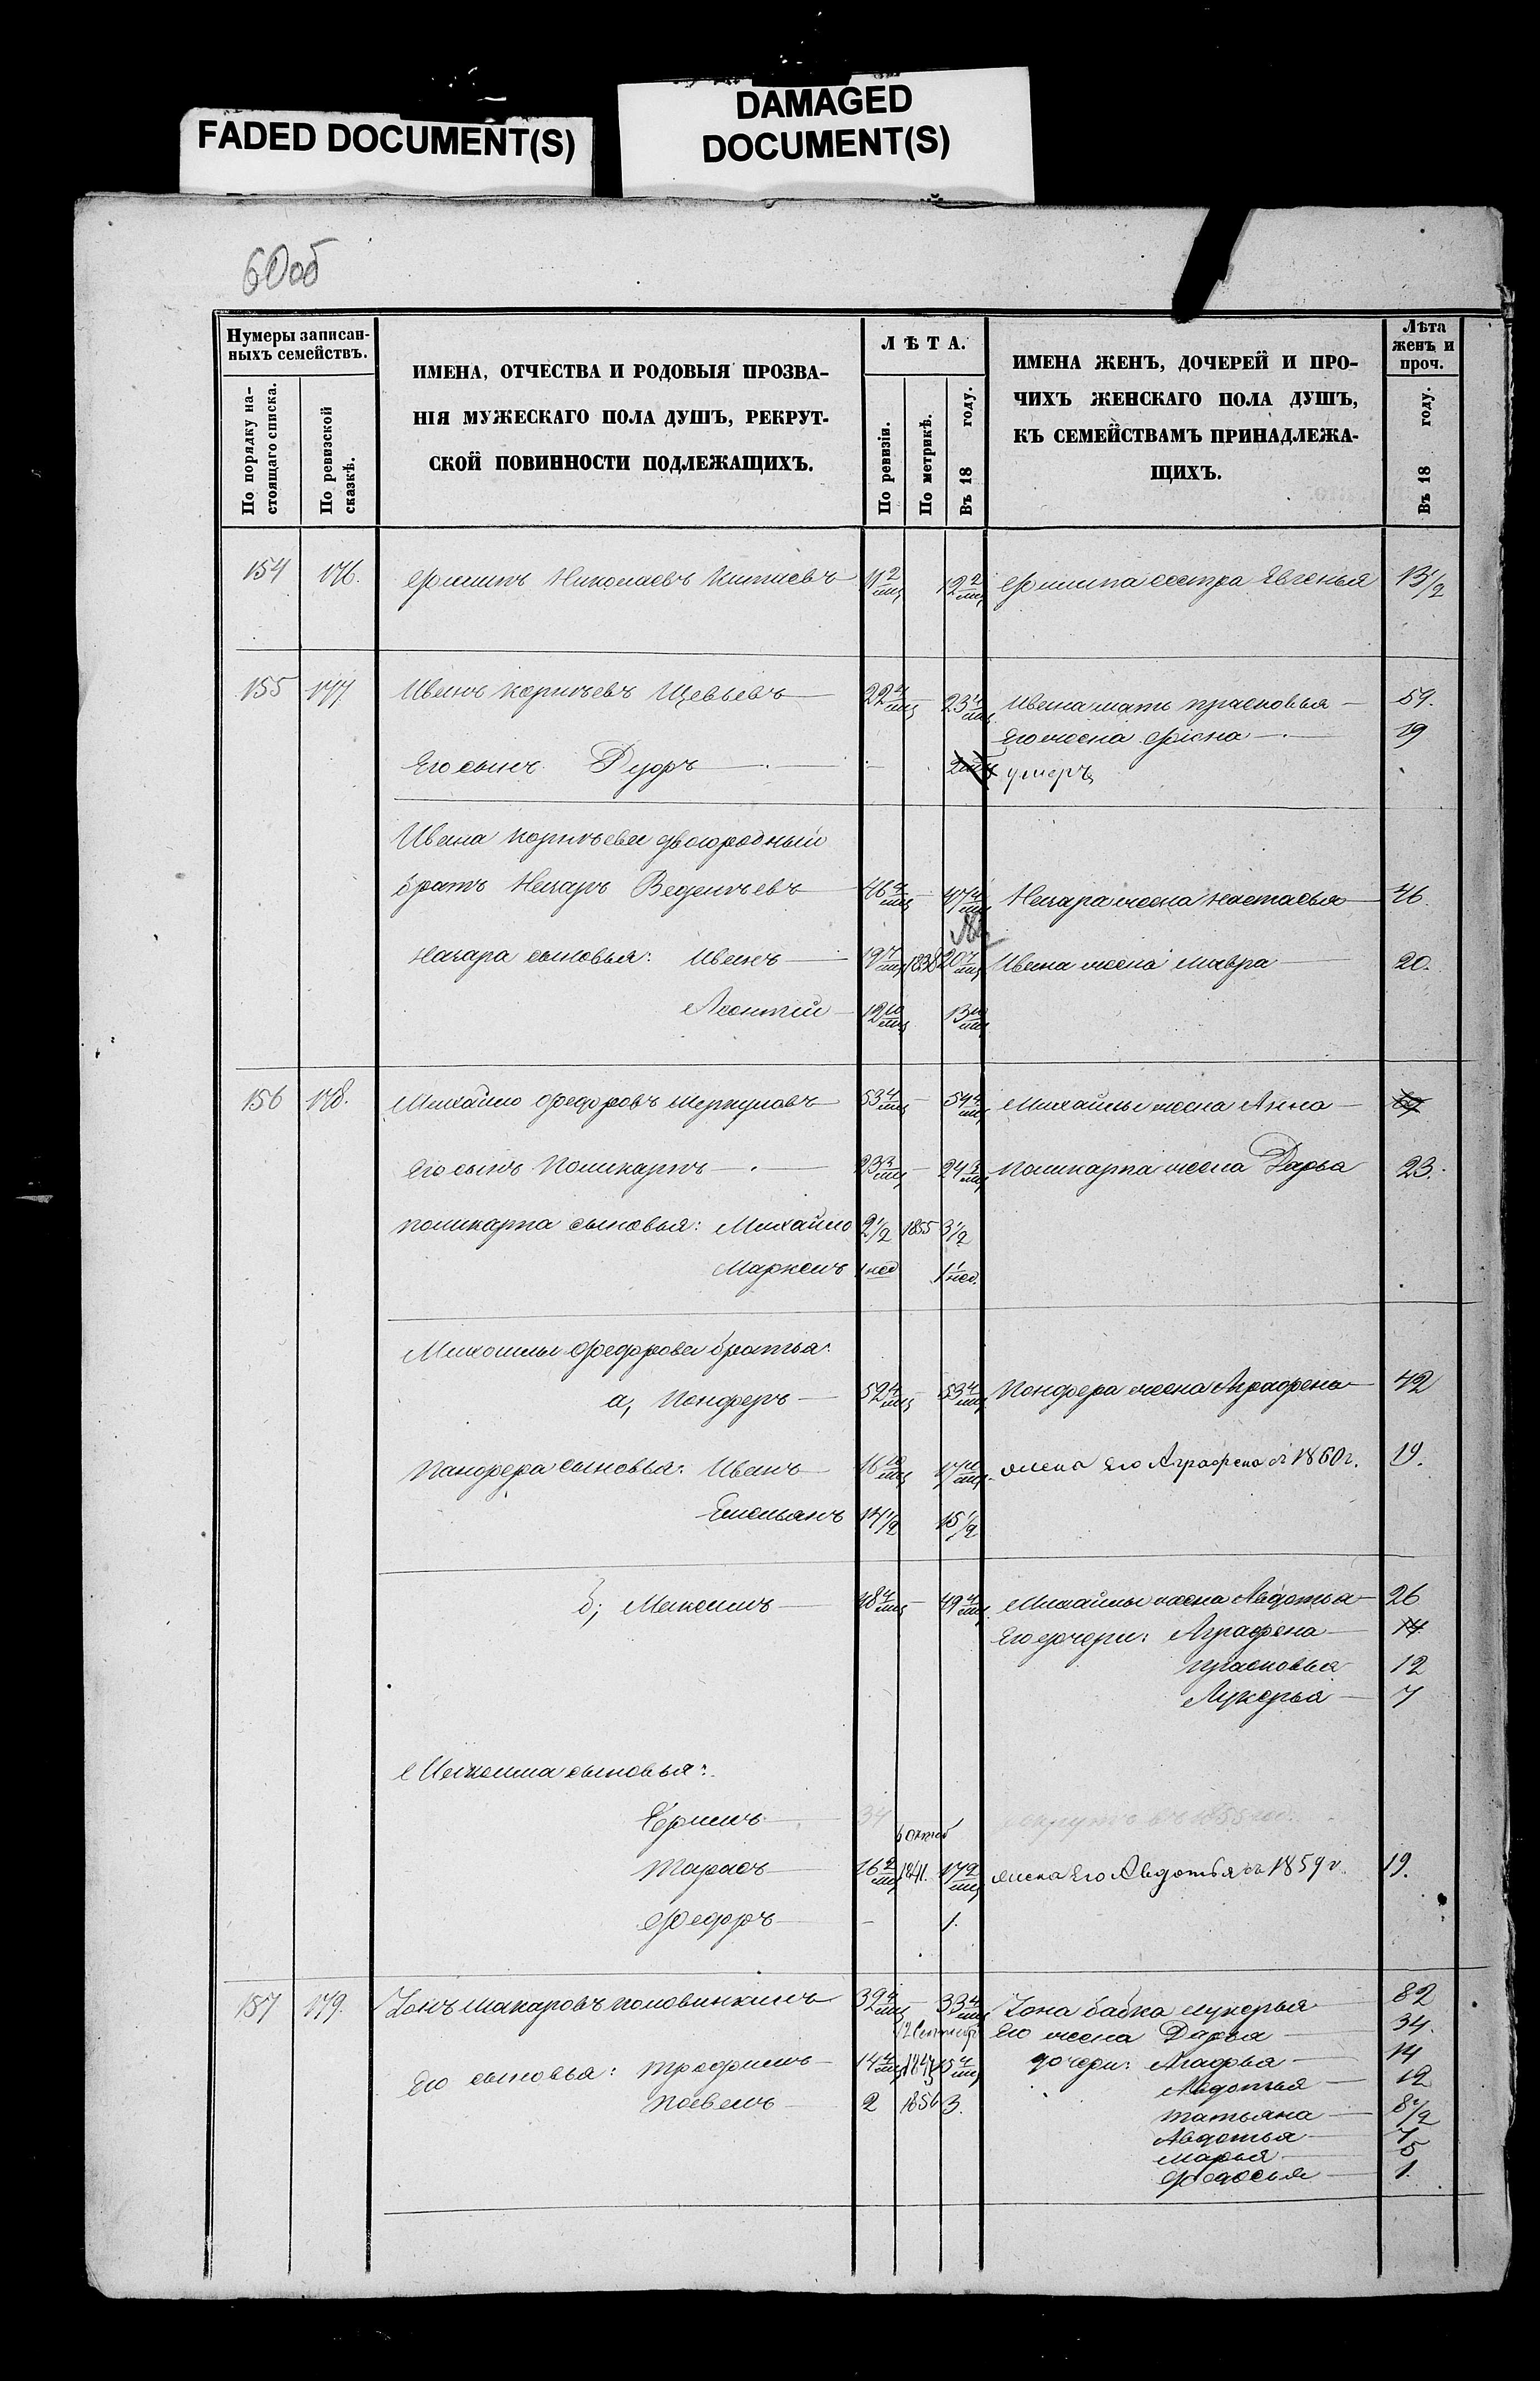 FADED DOCUMENT(S)
DAMAGED
DOCUMENT(S)
60об
Нумеры записан-
ныхъ семействъ.
По порядку на-
стоящаго списка.
По ревизской
сказкѣ.
ИМЕНА, ОТЧЕСТВА И РОДОВЫЯ ПРОЗВА-
НІЯ МУЖЕСКАГО ПОЛА ДУШЪ, РЕКРУТ-
СКОЙ ПОВИННОСТИ ПОДЛЕЖАЩИХЪ.
ЛѢТА.
По ревизіи.
По метрикѣ.
Въ 18 году.
ИМЕНА ЖЕНЪ, ДОЧЕРЕЙ И ПРО-
ЧИХЪ ЖЕНСКАГО ПОЛА ДУШЪ,
КЪ СЕМЕЙСТВАМЪ ПРИНАДЛЕЖА-
ЩИХЪ.
Лѣта
женъ и
проч.
Въ 18 году.
154 176. Филипъ Николаевъ Китаевъ 11 2/мц 12 2/мц Филипа сестра Евгенья 13 1/2
155 177 Иванъ Карпъевъ 22 4/мц — 23 4/мц Ивана мать прасковья — 59.
Его жена — 19
Его сынъ умеръ
Ивана Карпъева двоюродный
братъ Назаръ Веденъевъ 46 4/мц — 47 4/мц Назара жена настасья 46.
Назара сыновья: Иванъ 19 7/мц 1838 20 7/мц Ивана жена мавра 20.
Леонтій 12 10/мц 13 10/мц
156 178. Михайло Федоровъ Меркуловъ 53 4/мц — 54 4/мц Михайлы жена Анна —
Его сынъ Поликарпъ 23 3/мц — 24 3/мц Поликарпа жена Дарья 23.
поликарпа сыновья: Михайло 2 1/2 1855 3 1/2
1 нед 1 1/нед.
Михайлы Федорова братья:
а, Панферъ — 52 4/мц — 53 4/мц Панфера жена Аграфена 42
Панфера сыновья: Иванъ 16 10/мц 17 10/мц жена его Аграфена съ 1860г. 19.
Емельянъ 14 1/2 15 1/2
б, Максимъ — 48 4/мц — 49 4/мц Михайлы жена Авдотья 26
Его дочери: Аграфена — 14
прасковья 12
Лукерья — 7
Максима сыновья:
Ефимъ 34 рекрутъ въ 1855 год.
6 октяб
Тарасъ 16 2/мц 1841. 17 2/мц жена его Авдотья съ 1859 г. 19.
Федоръ — 1.
157 179. Зонъ Макаровъ половинкинъ 32 4/мц — 33 4/мц Зона бабка лукерья 82
Его жена Дарья 34.
12 Сентябр
Его сыновья: Трофимъ 14 4/мц 15 4/мц дочери: Агафья 14
Авдотья 12
Павелъ 2 1856 3. татьяна 8 1/2
Авдотья 7
марья 5
федосья 1.